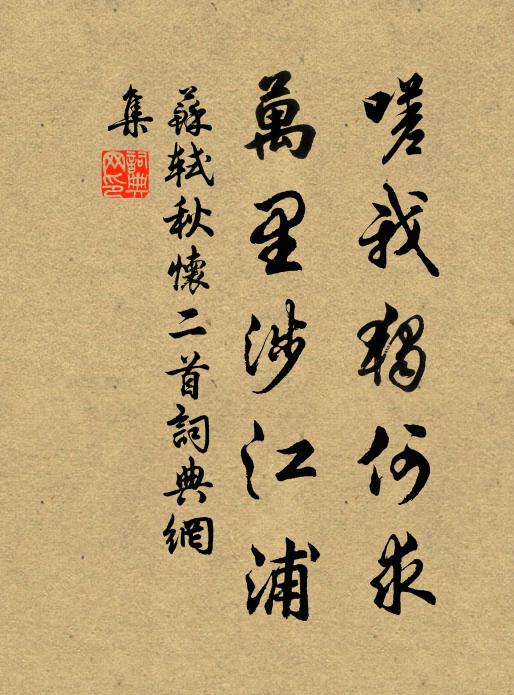 嗟我獨何求
萬里涉江浦
蘇軾秋懷二首詞典網
集
詞典
网印